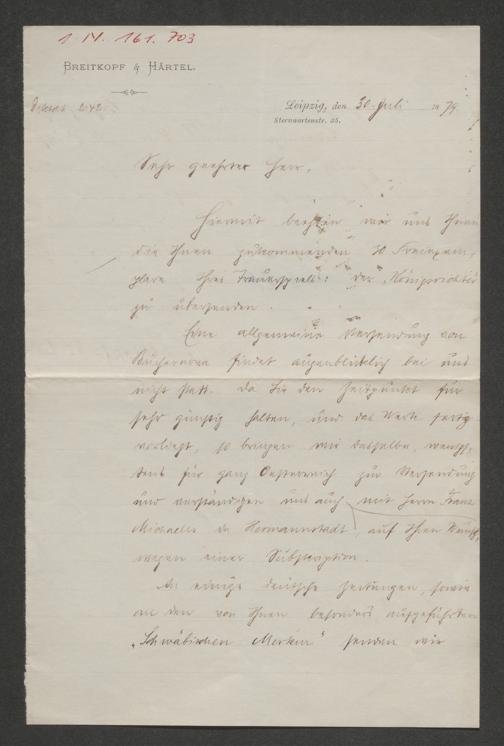 1 N. 161. 703
BREITKOPF & HÄRTEL.
Leipzig, den 30. Juli 1879
Sternwartenstr. 35.
Sehr geehrter Herr,
Hiermit beehren wir uns Ihnen
die Ihnen zukommenden 30 Freiexem-
plare Ihres Trauerspiels: "Der Königsrichter"
zu übersenden.
Eine allgemeine Versendung von
findet augenblicklich bei uns
nicht statt. Da Sie den Zeitpunkt für
sehr günstig halten, und das Werk fertig
vorliegt, so bringen wir dasselbe, wenigs-
tens für ganz Oesterreich zur Versendung
und verständigen uns auch mit Herrn Franz
Michaelis in Hermannstadt, auf Ihren Wunsch,
wegen einer Subscription.
An einige deutsche Zeitungen, sowie
an den von Ihnen besonders aufgeführten
„Schwäbischen Merkur" senden wir